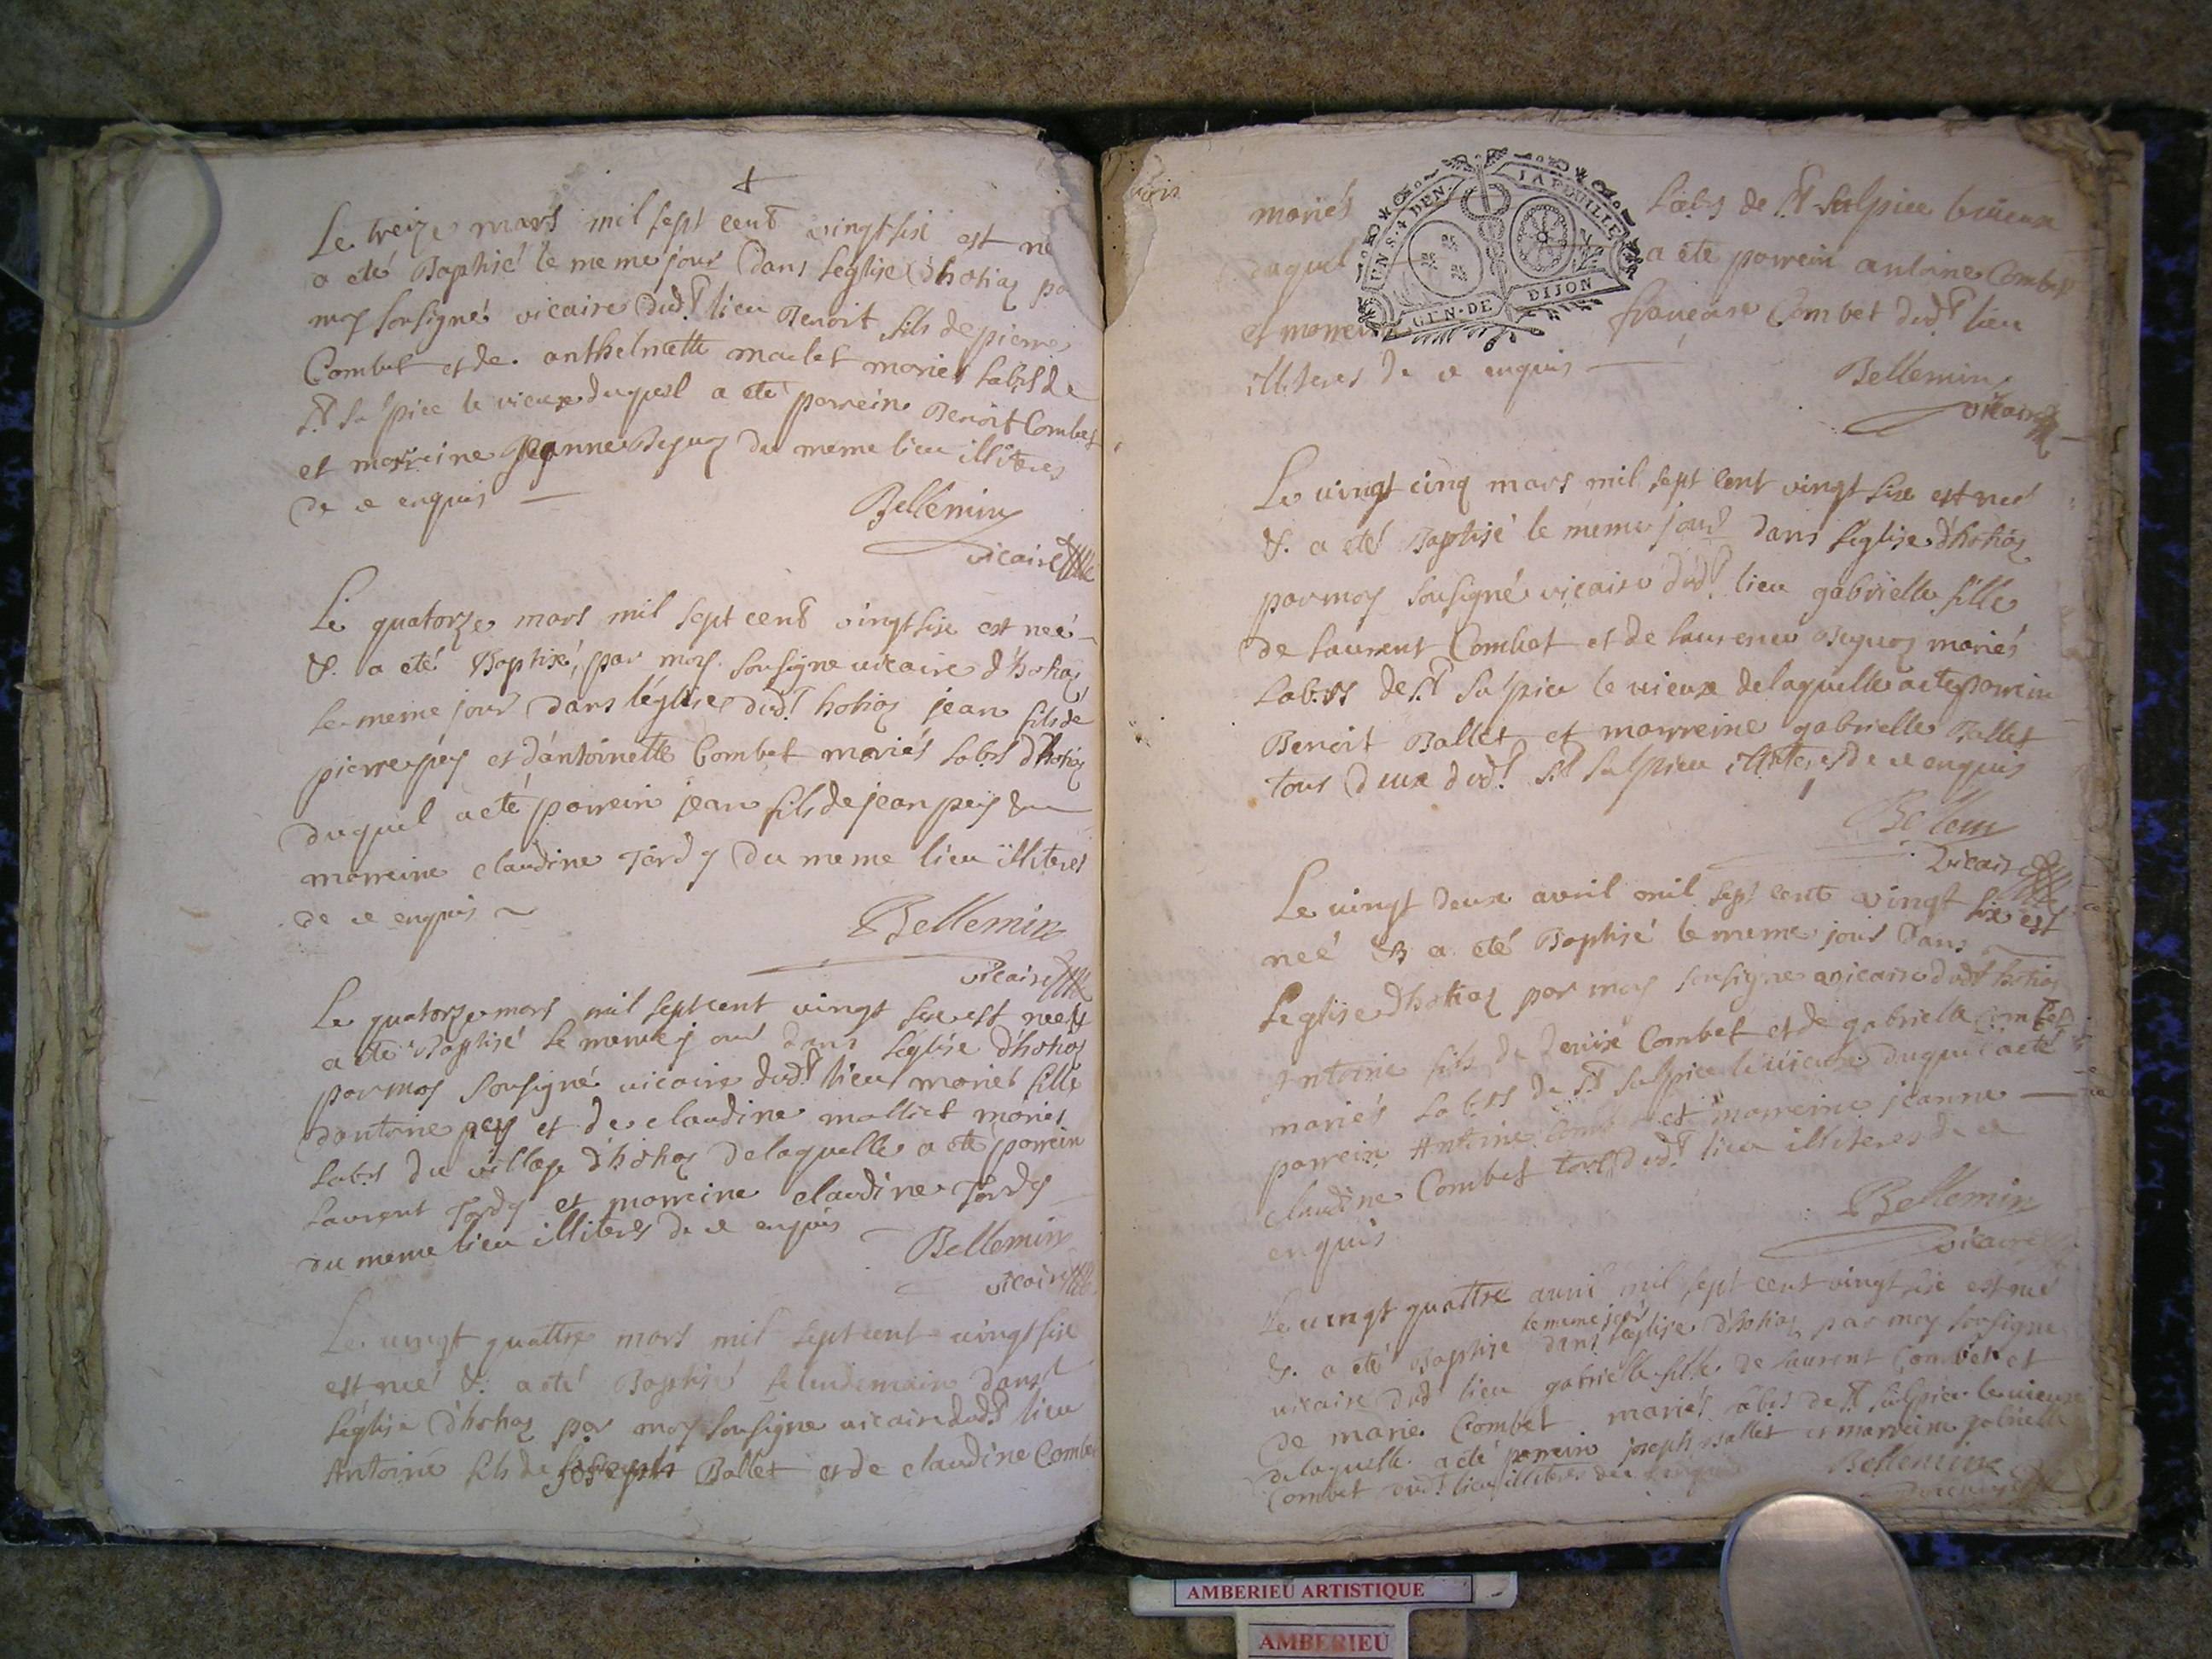 Le treize mars mil sept cent vingt six est né
a eté Baptisé le meme jour dans leglise d'hotiaz pa
moy sousigné vicaire dud.t lieu Benoit fils de pierre
Combet et de anthelmette maclet mariés lab.rs de
s.t sulpice le vieux duquel a eté parrein Benoit Combet
et marreine jeanne Beguoz du meme lieu illiteres
de ce enquis
Bellemin
vicaire
Le quatorze mars mil sept cent vingt six est neé
&. a eté Baptisé, par moy sousigne vicaire d'hotiaz
le meme jour dans léglise dud.t hotiaz jean fils de
pierre pey et dantoinette Combet mariés lab.rs d'hotiaz
duquel a eté parrein jean fils de jean pey &
marreine claudine Tardy du meme lieu illiteres
de ce enquis
Bellemin
vicaire
Le quatorze mars mil sept cent vingt six est neé &
a eté Baptisé le meme jour dans léglise d'hotiaz
par moy sousigné vicaire dud.t lieu marie fille
dantoine pey et de claudine malliet mariés
lab.rs du village d'hotiaz delaquelle a eté parrein
laurent Tardy et marreine claudine Tardy
du meme lieu illiteres de ce enquis
Bellemin
vicaire
Le vingt quattre mars mil sept cent vingt six
est né &. a eté Baptisé le lendemain dans
léglise d'hotiaz par moy sousigne vicaire dud.t lieu
Antoine fils de joseph Ballet et de claudine Combet
mariés lab.rs de s.t sulpice le vieux
duquel a eté parrein antoine Combet
et marreine francoise Combet dud.t lieu
illiteres de ce enquis
UN S. 4 DEN. LA FEUILLE
GEN. DE DIJON
Bellemin
vicaire
Le vingt cinq mars mil sept cent vingt six est neé
&. a eté Baptisé le meme jour dans léglise d'hotiaz
par moy sousigné vicaire dud.t lieu gabrielle fille
de laurent Combet et de laurence Beguoz mariés
lab.rs de s.t sulpice le vieux delaquelle a eté parrein
Benoit Ballet et marreine gabrielle Ballet
tous deux dud.t s.t sulpice illiteres de ce enquis
Bellem
vicaire
Le vingt deux avril mil sept cent vingt six est
neé & a eté Baptisé le meme jour dans
leglise d'hotiaz par moy sousigne vicaire dud.t hotiaz
Antoine fils de denise Combet et de gabrielle Combet
mariés lab.rs de s.t sulpice le vieux duquel a eté
parrein Antoine Combet et marreine jeanne
claudine Combet tous dud.t lieu illiteres de ce
enquis
Bellemin
vicaire
Le vingt quattre avril mil sept cent vingt six est né
&. a eté Baptisé le meme jour dans leglise d'hotiaz par moy sousigne
vicaire dud.t lieu gabrielle fille de laurent Combet et
de marie Combet mariés lab.rs de s.t sulpice le vieux
delaquelle a eté parrein joseph Ballet et marreine gabrielle
Combet dud.t lieu illiteres de ce enquis
Bellemin
vicaire
AMBERIEU ARTISTIQUE
AMBERIEU